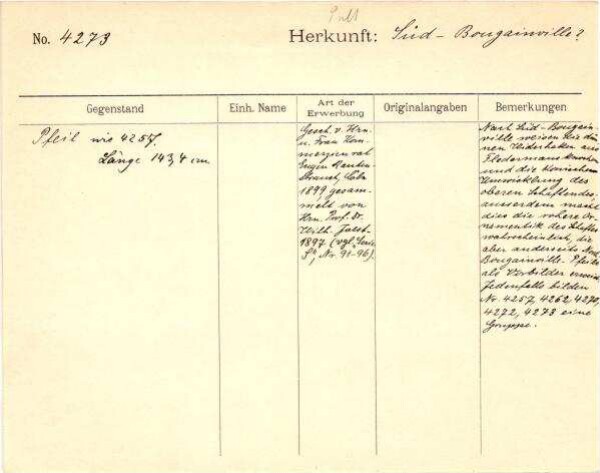 Pult
No. 4273
Herkunft: Süd-Bougainville?
Gegenstand
Einh. Name
Art der Erwerbung
Originalangaben
Bemerkungen
Pfeil wie 4257.
Länge 143,4 cm
Gesch. v. Hrn.
u. Frau Kom-
merzienrat
Eugen Rauten-
strauch, Cöln
1899, gesam-
melt von
Hrn. Prof. Dr.
Wilh. Joest
1897 (vgl. Serie
Nr. 91-96).
Nach Süd-Bougain-
ville weisen die dün-
nen Widerhaken aus
Fledermausknochen
und die konischen
Umwicklung des
oberen Schaftendes,
ausserdem macht
dies die rohere Or-
nementik des Schaftes
wahrscheinlich, die
aber anderseits Nord
Bougainville-Pfeile
als Vorbilder erweist.
Jedenfalls bilden
No. 4257, 4262, 4270,
4272, 4273 eine
Gruppe.